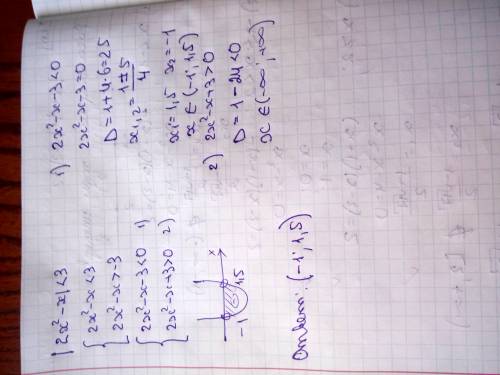 |2x²-x|<3
{ 2x²-x<3
2x²-x>-3
{ 2x²-x-3<0 1)
2x²-x+3>0 2)
-1 1,5 x
Ответ: (-1; 1,5)
1) 2x²-x-3<0
2x²-x-3=0
D=1+4·6=25
x₁,₂= 1±5
4
x₁=1,5 x₂=-1
x∈(-1; 1,5)
2) 2x²-x+3>0
D=1-24<0
x∈(-∞; +∞)